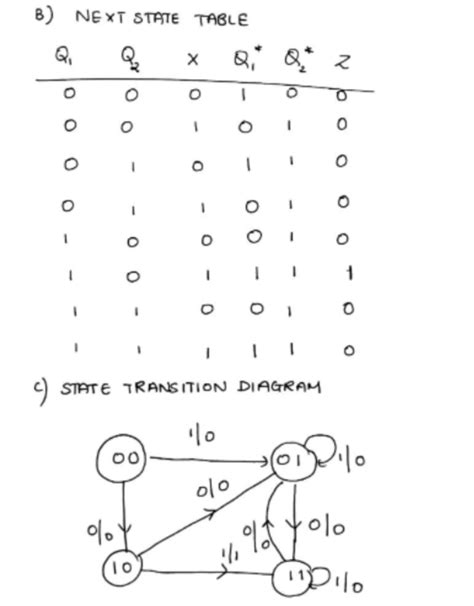 B) NEXT STATE TABLE
Q₁ Q₂ X Q₁* Q₂* Z
0 0 0 1 0 0
0 0 1 0 1 0
0 1 0 1 1 0
0 1 1 0 1 0
1 0 0 0 1 0
1 0 1 1 1 1
1 1 0 0 1 0
1 1 1 1 1 0
C) STATE TRANSITION DIAGRAM
1/0
00 01 1/0
0/0
0/0 0/0 0/0
10 1/1 11 1/0